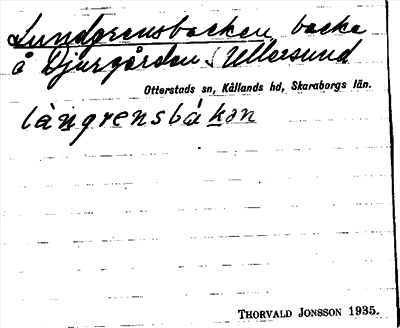 Lundgrensbacken backe
å Djurgården, Ullersund
Otterstads sn, Kållands hd, Skaraborgs län.
THORVALD JONSSON 1935.